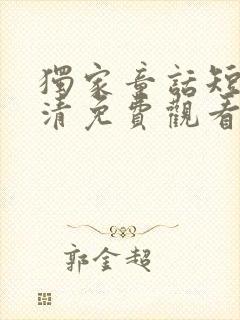 獨家童話短
清免費觀看
郭金超